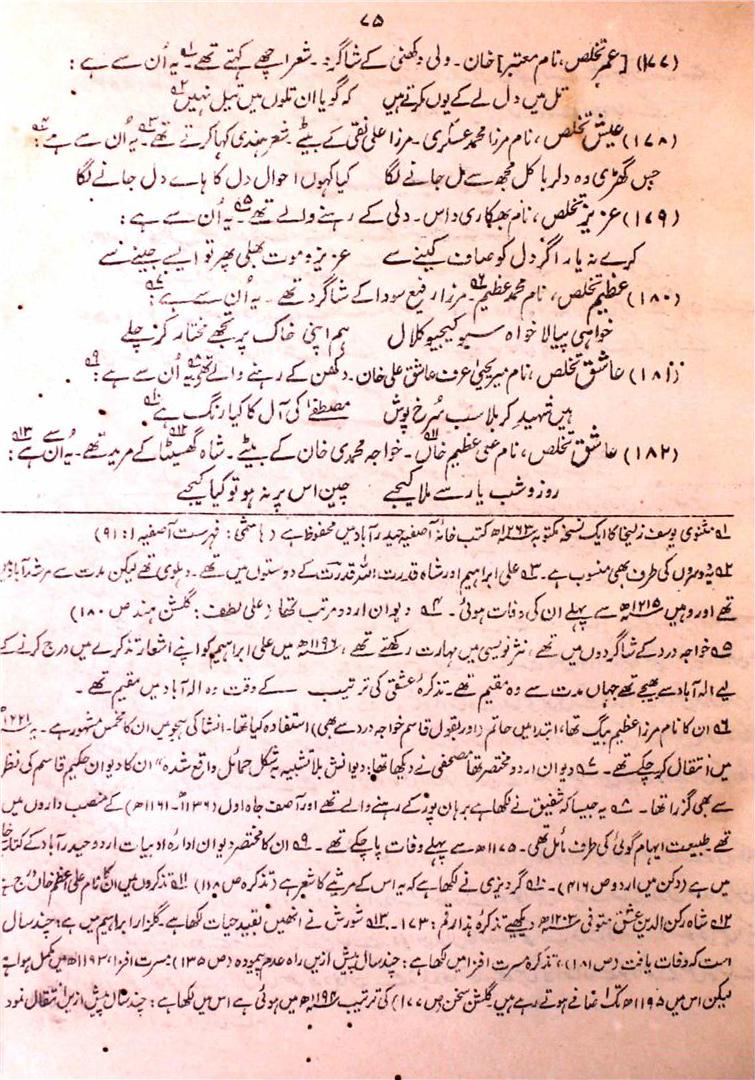 ۷۵
(۱۷۷) [عمر تخلص، نام معتبر] خان۔ ولی دکھنی کے شاگرد۔ شعر اچھے کہتے تھے۔ یہ اُن سے ہے :
تل میں دل لے کے یوں مکرتے ہیں کہ گویا ان تلوں میں تیل نہیں
(۱۷۸) عیش تخلص، نام مرزا محمد عسکری۔ مرزا علی نقی کے بیٹے۔ شعر ہندی کہا کرتے تھے۔ یہ اُن سے ہے :
جس گھڑی وہ دلربا کل مجھ سے مل جانے لگا کیا کہوں احوال دل کا ہائے دل جانے لگا
(۱۷۹) عزیز تخلص، نام بھکاری داس۔ دلی کے رہنے والے تھے۔ یہ اُن سے ہے :
کرے نہ یار اگر دل کو صاف کینے سے عزیزو موت بھلی پھر تو ایسے جینے سے
(۱۸۰) عظیم تخلص، نام محمد عظیم۔ مرزا رفیع سودا کے شاگرد تھے۔ یہ اُن سے ہے :
خواہی پیالا خواہ سبو کیجیو کلال ہم اپنی خاک پر تجھے مختار کر چلے
(۱۸۱) عاشق تخلص، نام میر یحییٰ عرف عاشق علی خان۔ دکھن کے رہنے والے تھے۔ یہ اُن سے ہے :
ہیں شہیدِ کربلا سب سُرخ پوش مصطفےٰ کی آل کا کیا رنگ ہے
(۱۸۲) عاشق تخلص، نام علی عظیم خاں۔ خواجہ محمدی خان کے بیٹے۔ شاہ گھسیٹا کے مرید تھے۔ یہ اُن سے ہے :
روز و شب یار سے ملا کیجے چین اس پر نہ ہو تو کیا کیجے
۱؎ مثنوی یوسف زلیخا کا ایک نسخہ مکتوبہ ۱۲۶۳ھ کتب خانۂ آصفیہ حیدرآباد میں محفوظ ہے (ہاشمی: فہرست آصفیہ ۱: ۹۱)
۲؎ یہ دوسروں کی طرف بھی منسوب ہے۔ ۳؎ علی ابراہیم اور شاہ قدرت اللہ قدرت کے دوستوں میں تھے۔ دہلوی تھے لیکن مدت سے مرشدآباد میں
تھے اور وہیں ۱۲۱۵ھ سے پہلے ان کی وفات ہوئی۔ ۴؎ دیوان اردو مرتب تھا (علی لطف: گلشن ہند ص ۱۸۰)
۵؎ خواجہ درد کے شاگردوں میں تھے، نثر نویسی میں مہارت رکھتے تھے، ۱۱۹۶ھ میں علی ابراہیم کو اپنے اشعار تذکرے میں درج کرنے کے
لیے الہ آباد سے بھیجے تھے جہاں مدت سے وہ مقیم تھے۔ تذکرۂ عشقی کی ترتیب کے وقت وہ الہ آباد میں مقیم تھے۔
۶؎ ان کا نام مرزا عظیم بیگ تھا، ابتدا میں حاتم (اور بقول قاسم خواجہ درد سے بھی) استفادہ کیا تھا۔ انشا کی ہجو میں ان کا مخمس مشہور ہے۔ یہ ۱۲۲۱ھ
میں انتقال کر چکے تھے۔ ۷؎ دیوان اردو مختصر تھا مصحفی نے دیکھا تھا: دیوانش بلا تشبیہ بہ شکل حمائل واقع شدہ" ان کا دیوان حکیم قاسم کی نظر
سے بھی گزرا تھا۔ ۸؎ یہ جیسا کہ شفیق نے لکھا ہے برہان پور کے رہنے والے تھے اور آصف جاہ اول (۱۱۳۶ھ۔۱۱۶۱ھ) کے منصب داروں میں
تھے طبیعت ایہام گوئی کی طرف مائل تھی۔ ۱۱۷۵ھ سے پہلے وفات پا چکے تھے۔ ۹؎ ان کا مختصر دیوان ادارۂ ادبیات اردو حیدرآباد کے کتابخا
میں ہے (دکن میں اردو ص ۴۱۶)۔ ۱۰؎ گردیزی نے لکھا ہے کہ یہ اس کے مرثیے کا شعر ہے (تذکرہ ص ۱۱۸) ۱۱؎ تذکروں میں ان کا نام علی اعظم خان درج ہے
۱۲؎ شاہ رکن الدین عشق متوفی ۱۲۰۳ھ دیکھیے تذکرہ ہذا رقم: ۱۷۳۔ ۱۳؎ شورش نے انھیں بقید حیات لکھا ہے۔ گلزار ابراہیم میں ہے؛ چند سال
است کہ وفات یافت (ص ۱۸۱)، تذکرہ مسرت افزا میں لکھا ہے: چند سال پیش ازیں راہ عدم پیمودہ (ص ۱۳۵)؛ مسرت افزا، ۱۱۹۳ھ میں مکمل ہوا ہے
لیکن اس میں ۱۱۹۵ھ تک اضافے ہوتے رہے ہیں۔ گلشن سخن (ص ۱۷۷) کی ترتیب ۱۱۹۴ھ میں ہوئی ہے اس میں لکھا ہے: چند سال پیش ازیں انتقال نمود